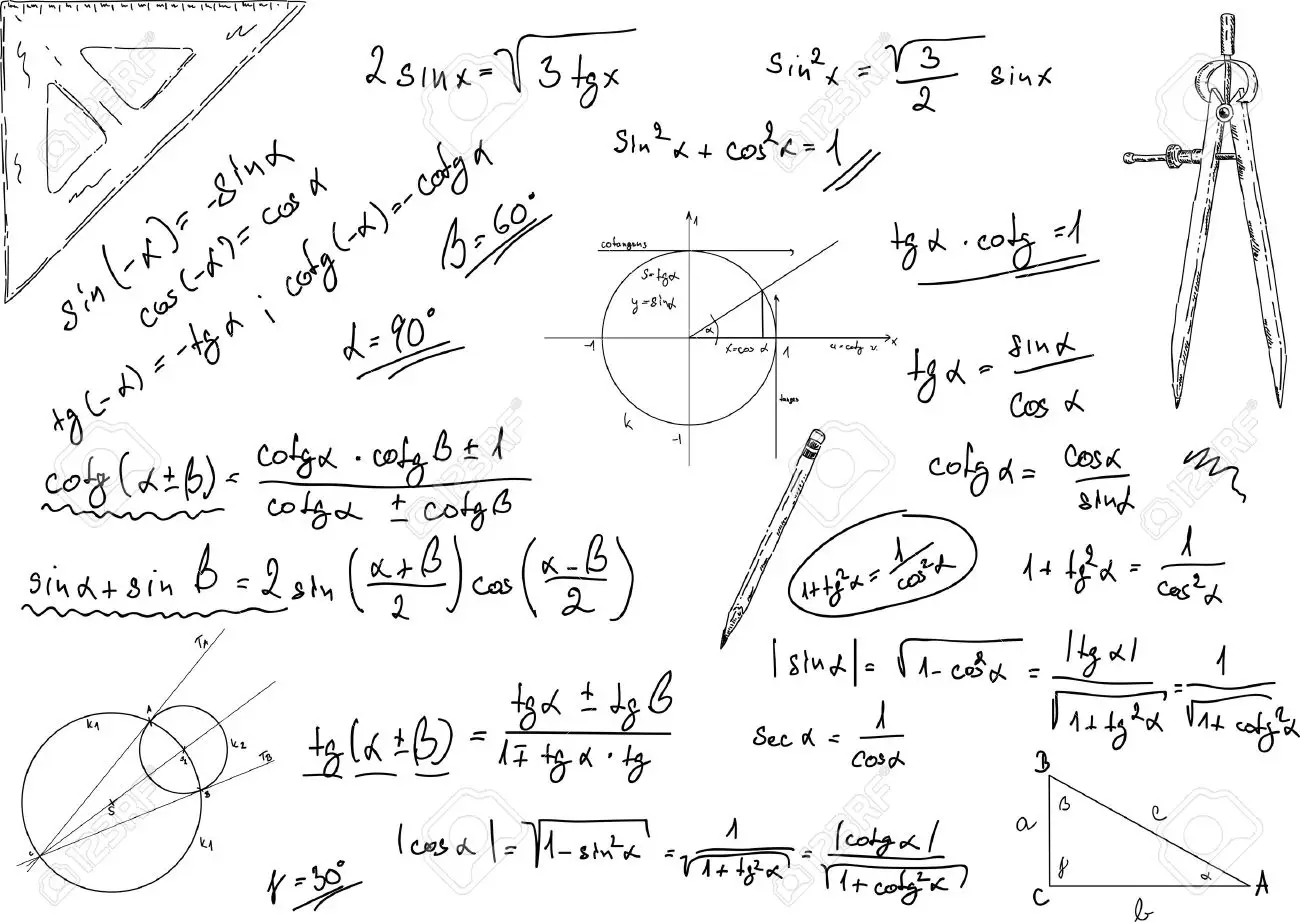 2 sin x = √3 tg x
sin² x = √3/2 sin x
sin² α + cos² α = 1
sin(-α) = -sin α
cos(-α) = cos α
tg(-α) = -tg α ; cotg(-α) = -cotg α
β = 60°
α = 90°
cotangens
S=tgα
y=sinα
α
x=cos α
-1
1
1
-1
x
k
tg α · cotg = 1
tg α = sin α / cos α
cotg α = cos α / sin α
cotg(α ± β) = cotg α · cotg β ± 1 / cotg α ± cotg β
sin α + sin β = 2 sin (α + β / 2) cos (α - β / 2)
1 + tg² α = 1 / cos² α
1 + tg² α = 1 / cos² α
|sin α| = √1 - cos² α = |tg α| / √1 + tg² α = 1 / √1 + cotg² α
TA
k1
A
k2
TB
S
B
k1
tg(α ± β) = tg α ± tg β / 1 ∓ tg α · tg
sec α = 1 / cos α
|cos α| = √1 - sin² α = 1 / √1 + tg² α = |cotg α| / √1 + cotg² α
γ = 30°
B
β
a
c
γ
α
C
A
b
123RF